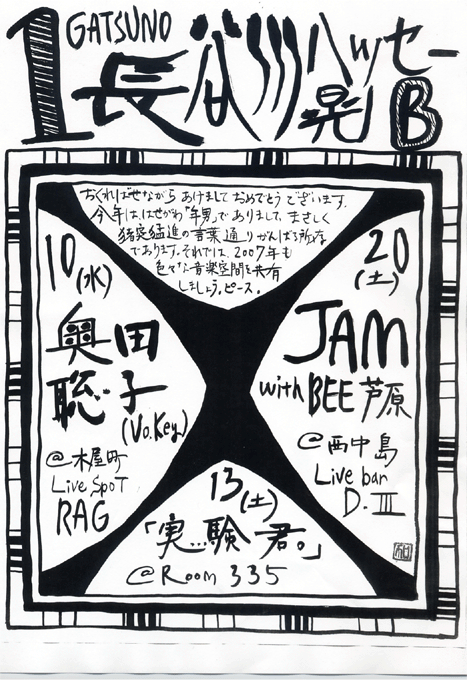 1 GATSUNO
長谷川ハッセー
晃 B
おくればせながら あけまして おめでとう ございます。
今年は、はせがわ「年男」でありまして、まさしく
猪突猛進の言葉通りがんばる所存
であります。それでは、2007年も
色々な音楽空間を共有
しましょう。ピース。
10(水)
奥田
聡子
(Vo.Key)
@木屋町
Live SpoT
RAG
20
(土)
JAM
with BEE 芦原
@西中島
Live bar
D.III
13(土)
「実…験君。」
@Room 335